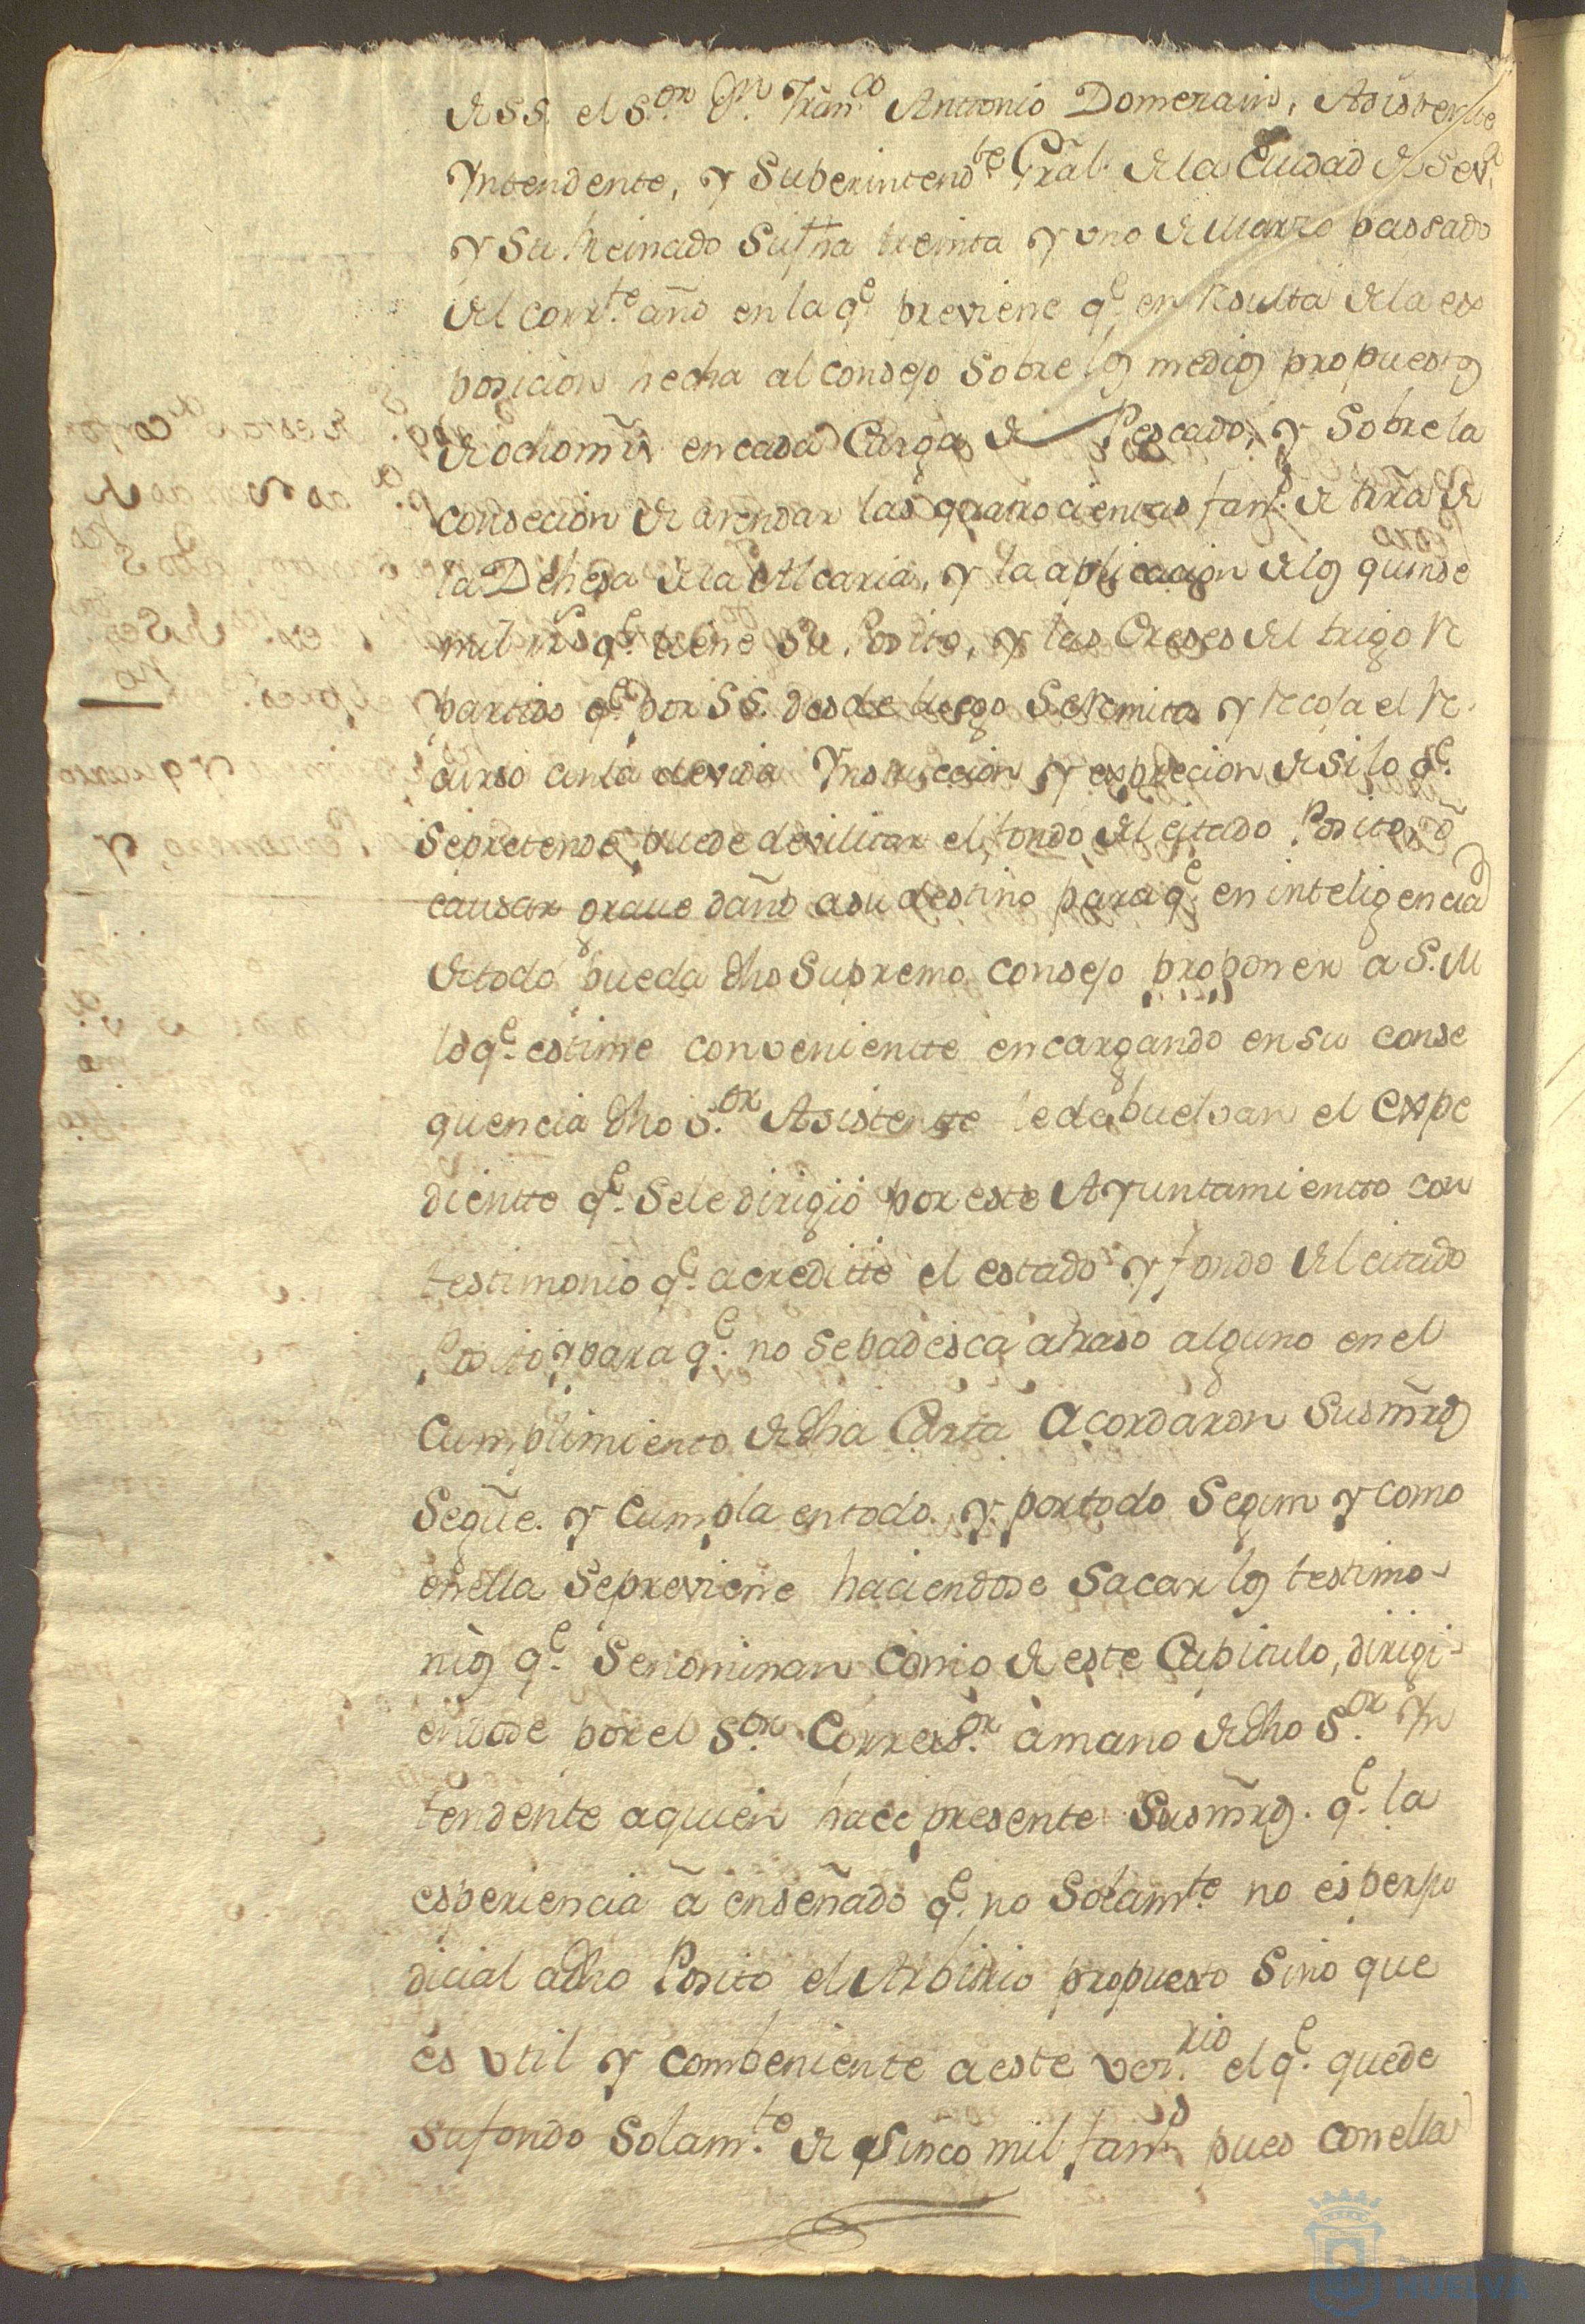 de SS. el S.or D.n Fran.co Antonio Domerain, Asistente
Yntendente, y Superintend.te Gral. de la Ciudad de Sev.a
y Su Reinado Su fha treinta y uno de Marzo passado
del corr.te año en la q.e previene q.e en Resulta de la ex
posicion hecha al consejo Sobre los medios propuestos
de ocho mrs en cada Carga de Pescado, y Sobre la
consecion de arendar las quatrocientas fan.s de tierra de
la Dehesa de la Alcaria, y la aplicacion de los quinse
mil rs q.e tiene Su Posito, y las Creses del trigo Re
partido q.e por SS. desde luego Se Remita y Recoja el Re
curso con la devida Ynstruccion y exprecion de si lo q.e
Se pretende puede devilitar el fondo del citado Posito, ó
causar graue daño a su destino para q.e en inteligencia
de todo pueda dho Supremo consejo proponer a S.M
lo q.e estime conveniente encargando en su conse
quencia dho S.or Asistente le debuelvan el expe
diente q.e Se le dirigió por este Ayuntamiento con
testimonio q.e acreditte el estado y fondo del citado
Posito, y para q.e no Se padesca atraso alguno en el
Cumplimiento de dha Carta Acordaron Sus mrds
Segûe. y Cumpla en todo y por todo Segun y como
en ella Se previene haciendose Sacar los testimo-
nios q.e Se nominan Como de este Capitulo, dirigi-
endose por el S.or Corre.or a mano de dho S.or Yn
tendente a quien hace presente Sus mrds. q.e la
esperiencia ã enseñado q.e no Solam.te no es perju
dicial a dho Posito el Arbitrio propuesto Sino que
es Vtil y Combeniente a este ver.rio el q.e quede
Su fondo Solam.te de Sinco mil fan.s pues con ella
HUELVA